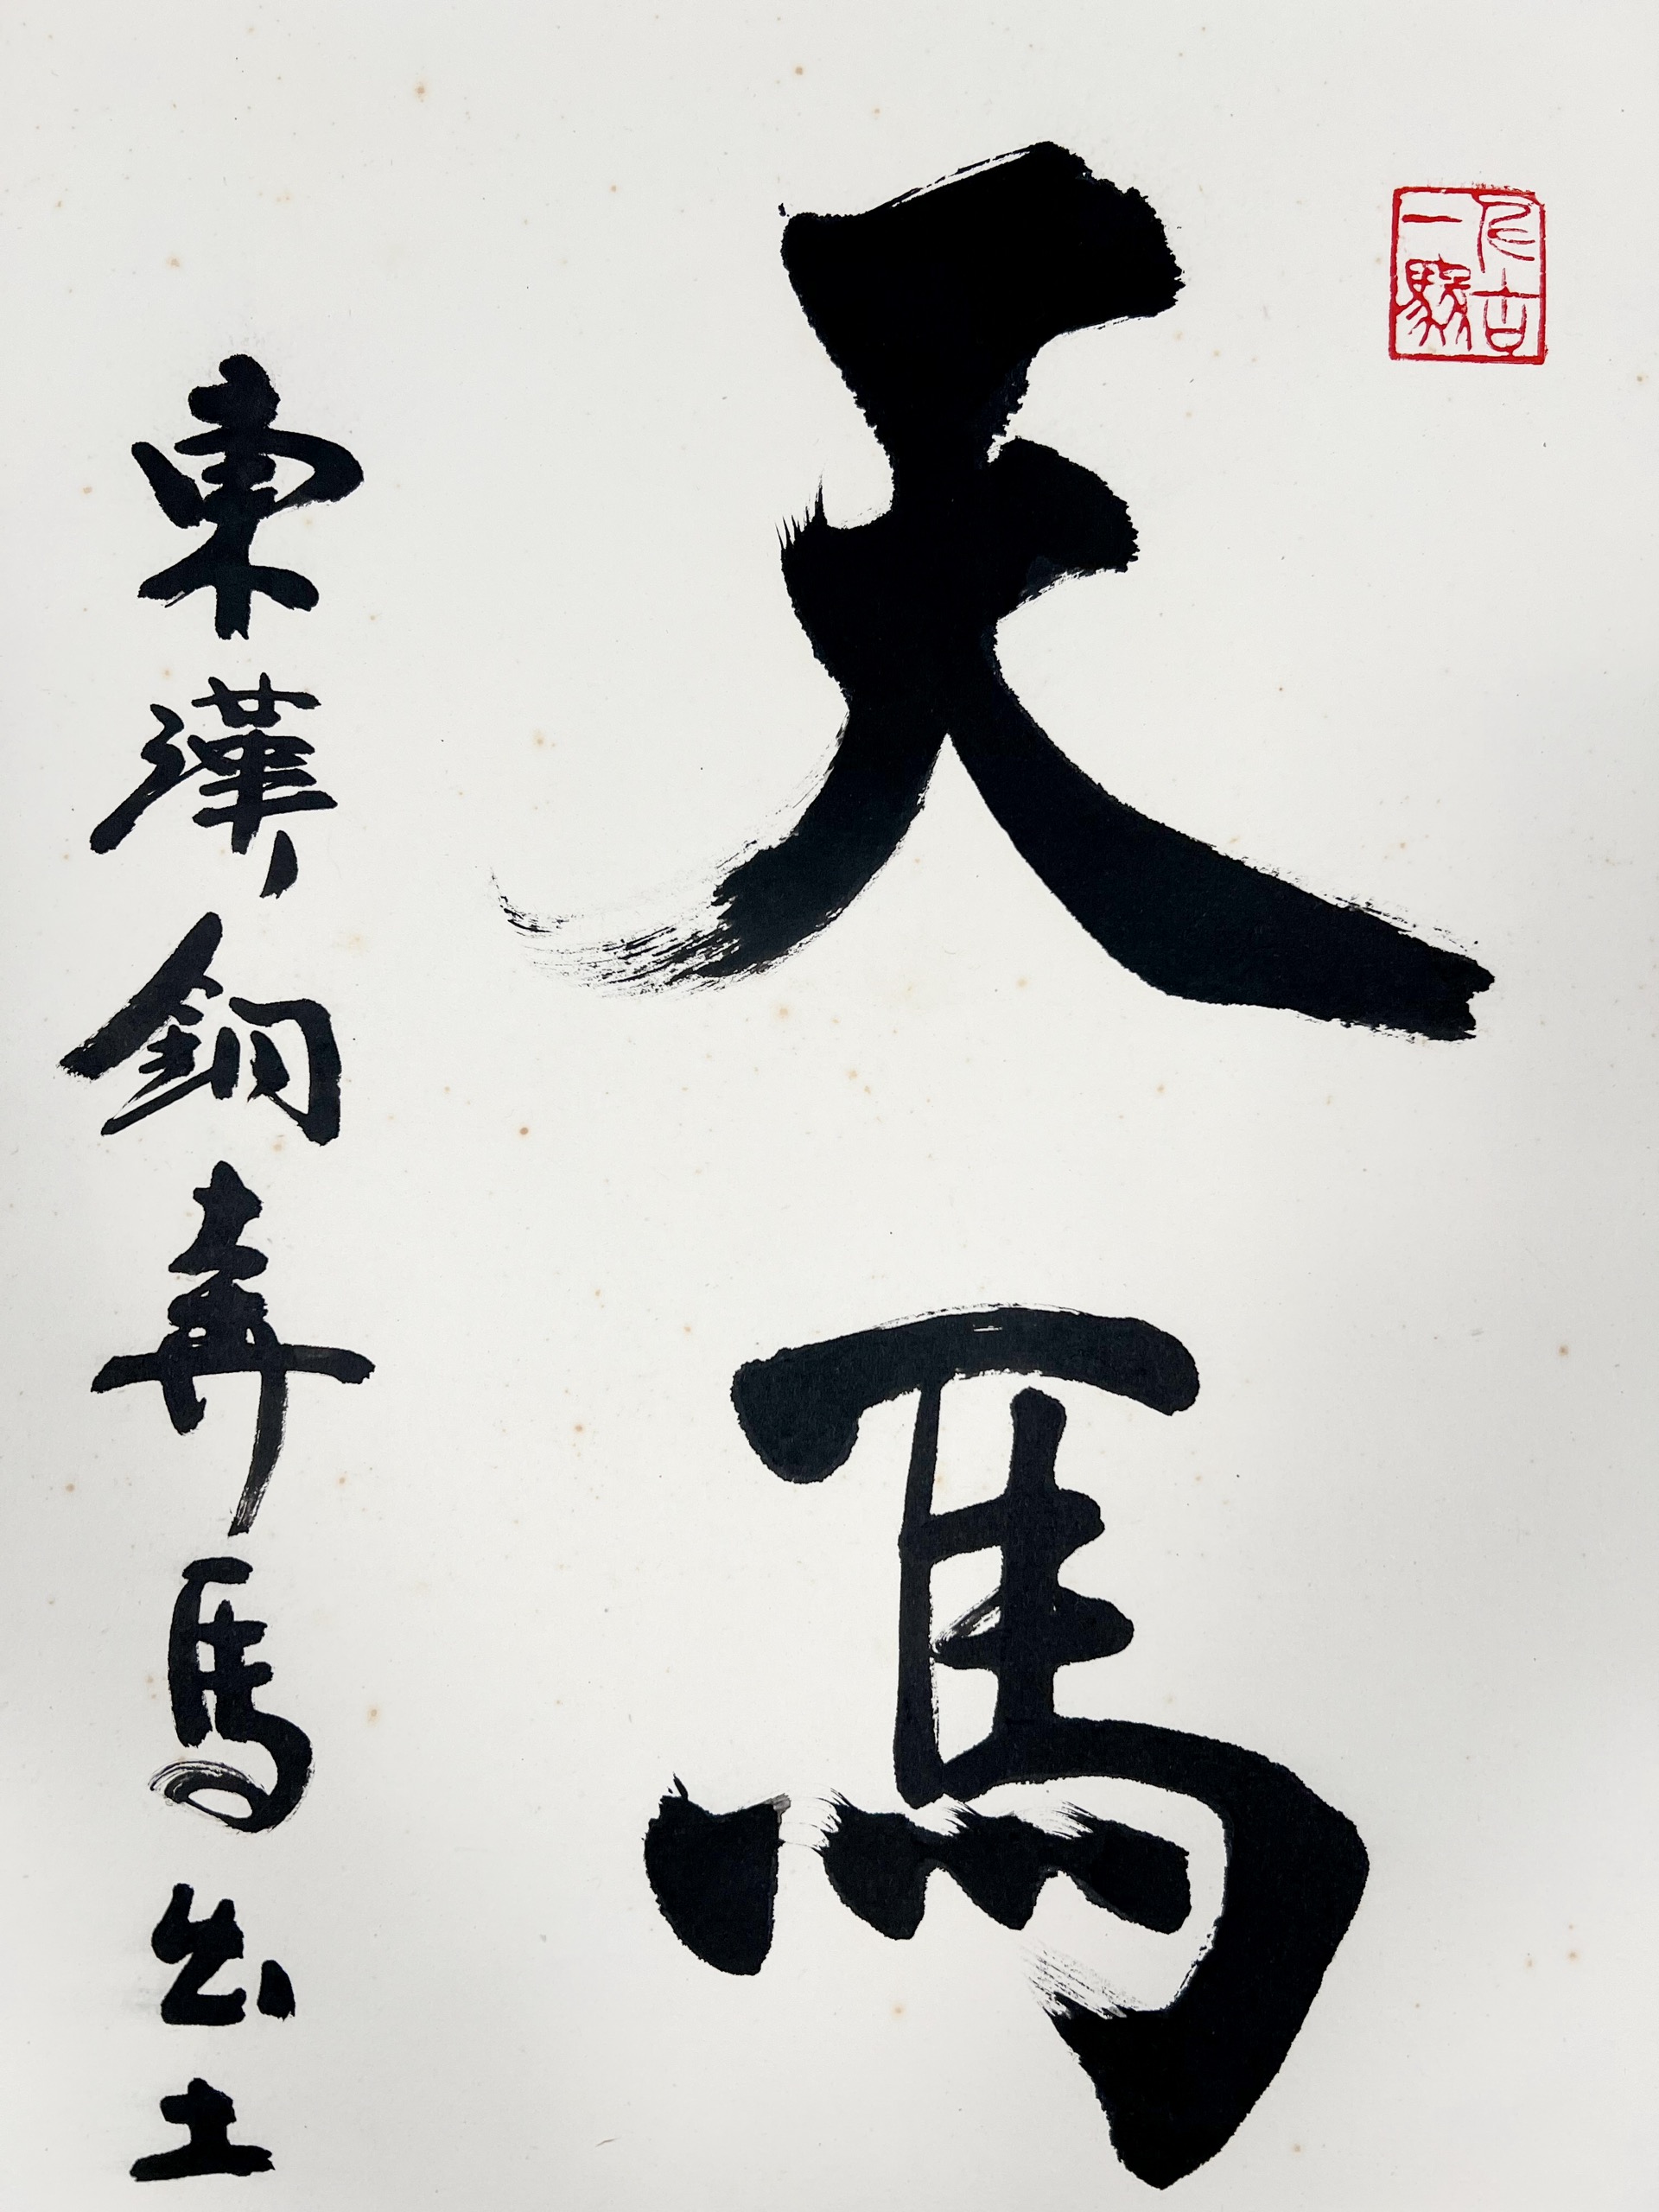 天馬
東漢銅奔馬出土